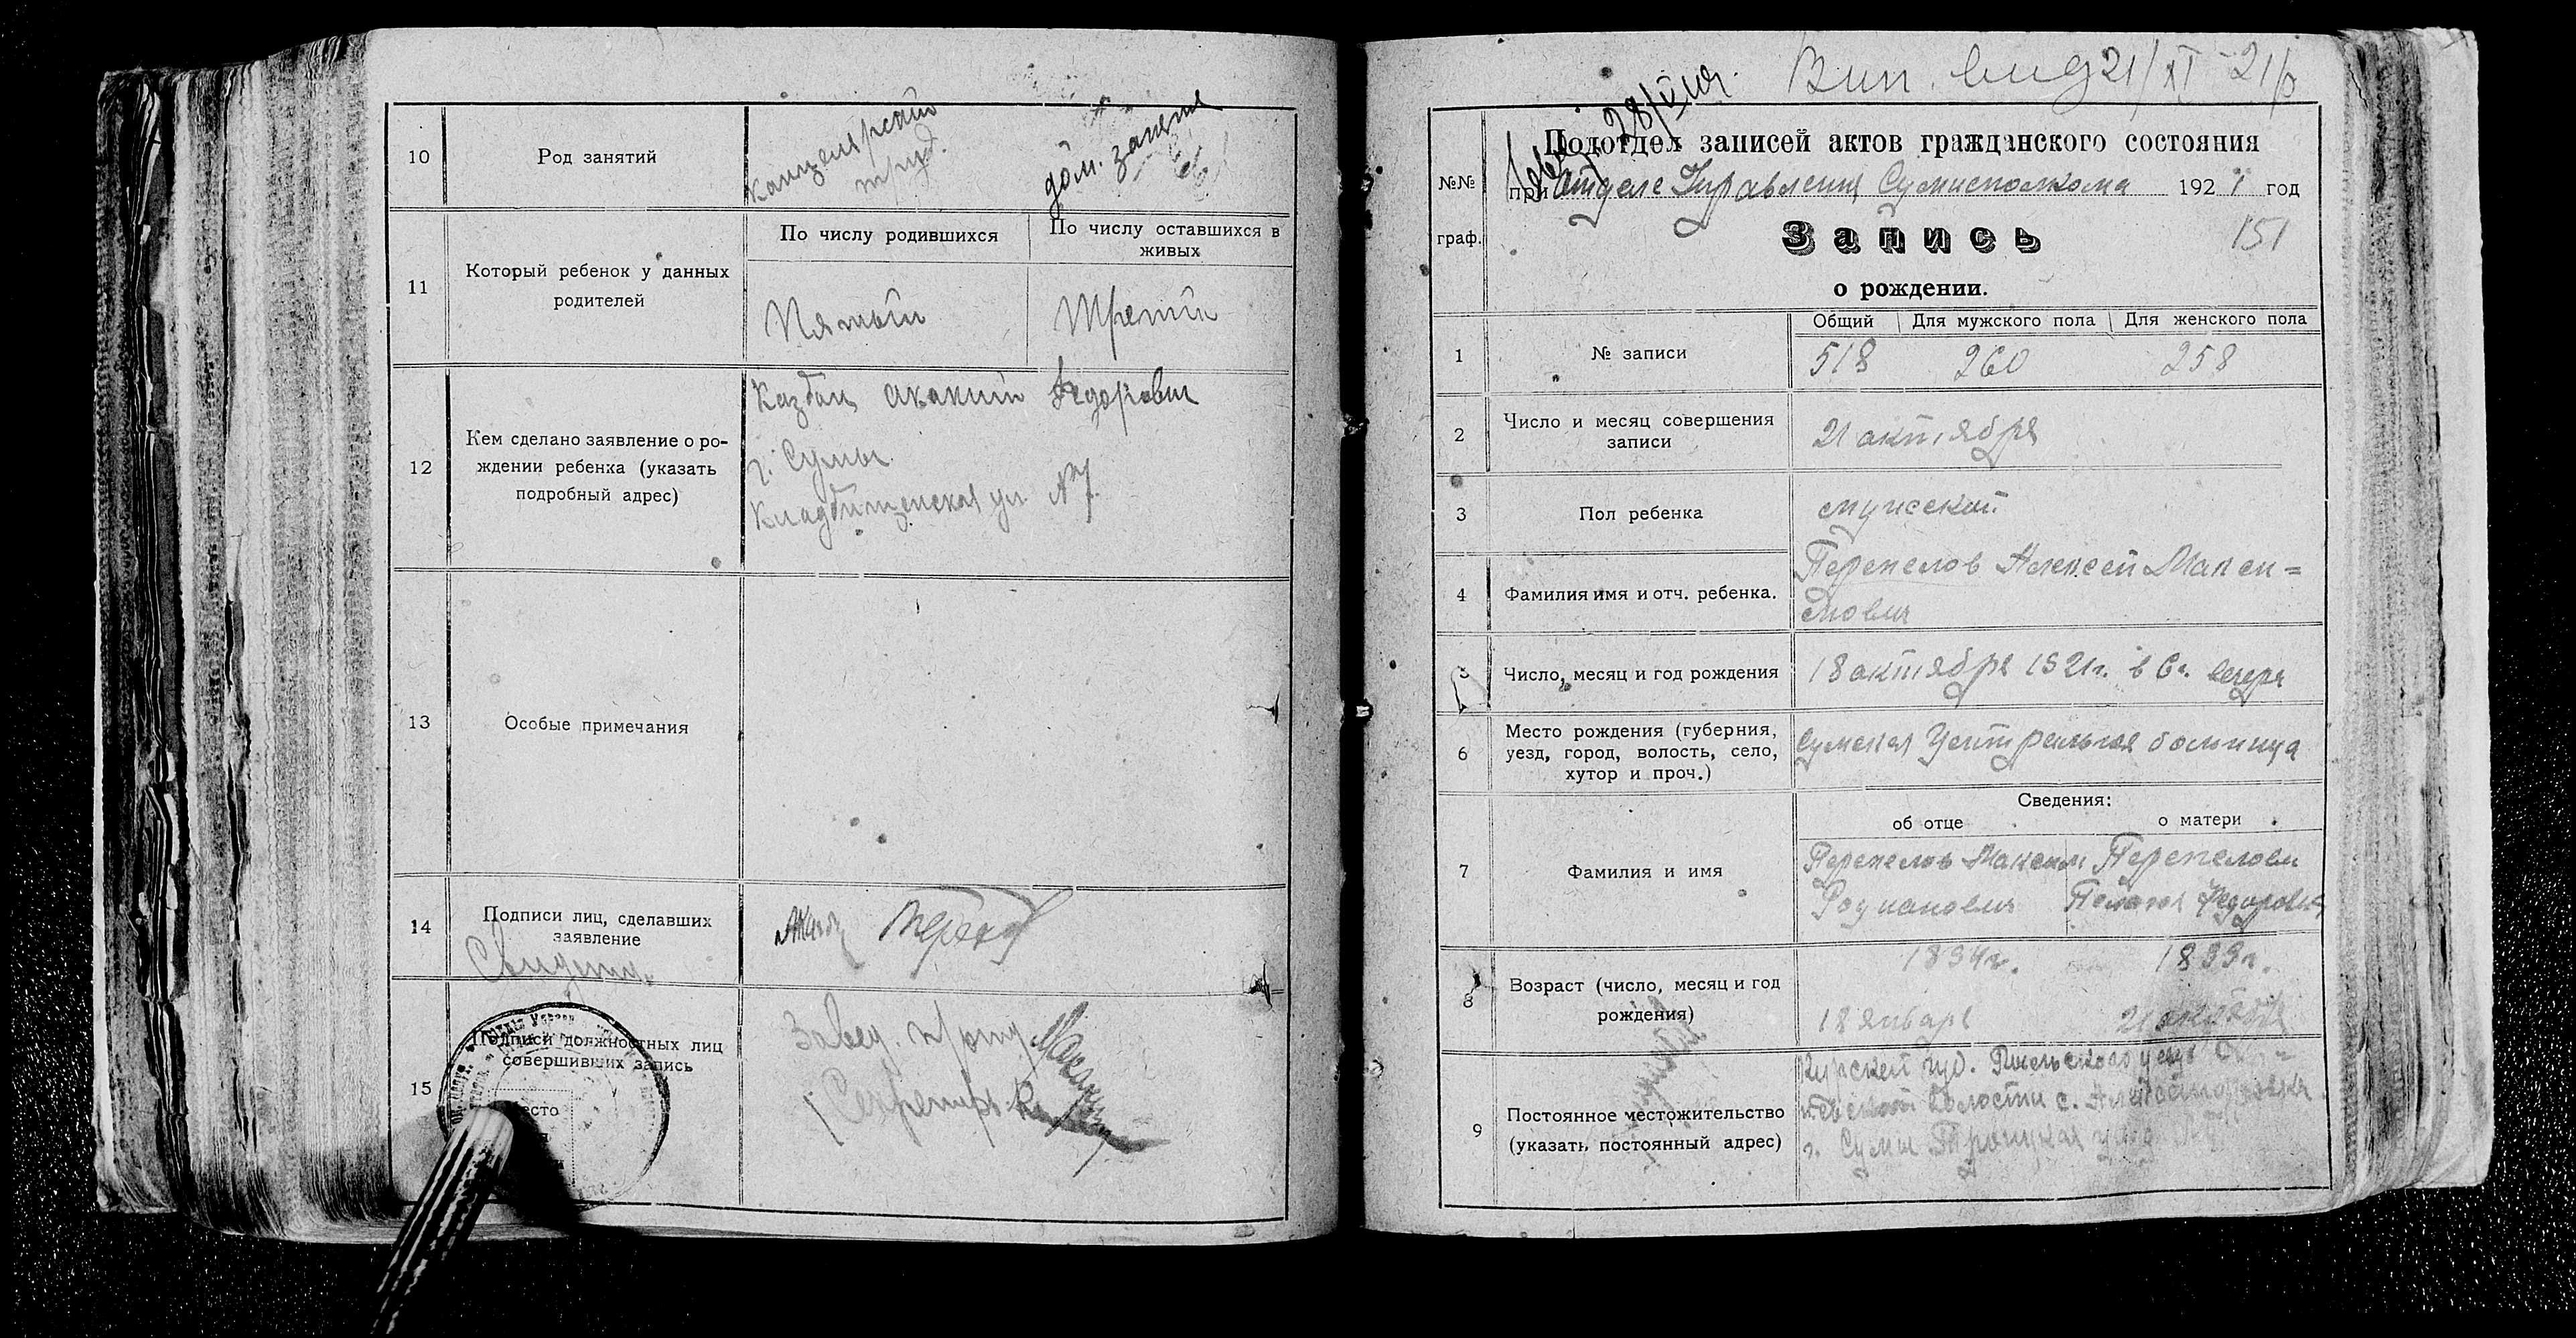 10
Род занятий
канцелярский
труд.
дом. занятия
11
Который ребенок у данных
родителей
По числу родившихся
По числу оставшихся в
живых
Пятый
Третий
12
Кем сделано заявление о ро-
ждении ребенка (указать
подробный адрес)
Казбан Акакий Федорович
г. Сумы
Кладбищенская ул. №7.
13
Особые примечания
14
Подписи лиц, сделавших
заявление
15
Подписи должностных лиц
совершивших запись
Завед. п/отд
Секретарь
28/VIII
Вип. вид 21/XI 21 р
№№
граф.
Подотдел записей актов гражданского состояния
при Отделе Управления Сумисполкома 1921 год
Запись
151
о рождении.
1
№ записи
Общий Для мужского пола Для женского пола
518 260 258
2
Число и месяц совершения
записи
21 октября
3
Пол ребенка
мужской
4
Фамилия имя и отч. ребенка.
Перепелов Алексей Макси=
мович
5
Число, месяц и год рождения
18 октября 1921 г. в 6 ч. вечера
6
Место рождения (губерния,
уезд, город, волость, село,
хутор и проч.)
Сумская Центральная больница
Сведения:
об отце
о матери
7
Фамилия и имя
Перепелов Максим
Родионович
Перепелова
Пелагея Федоровна
8
Возраст (число, месяц и год
рождения)
1894 г.
18 января
1899 г.
21 октября
9
Постоянное местожительство
(указать постоянный адрес)
Курской губ. Рыльского уезда
волости с.
г. Сумы Троицкая улица